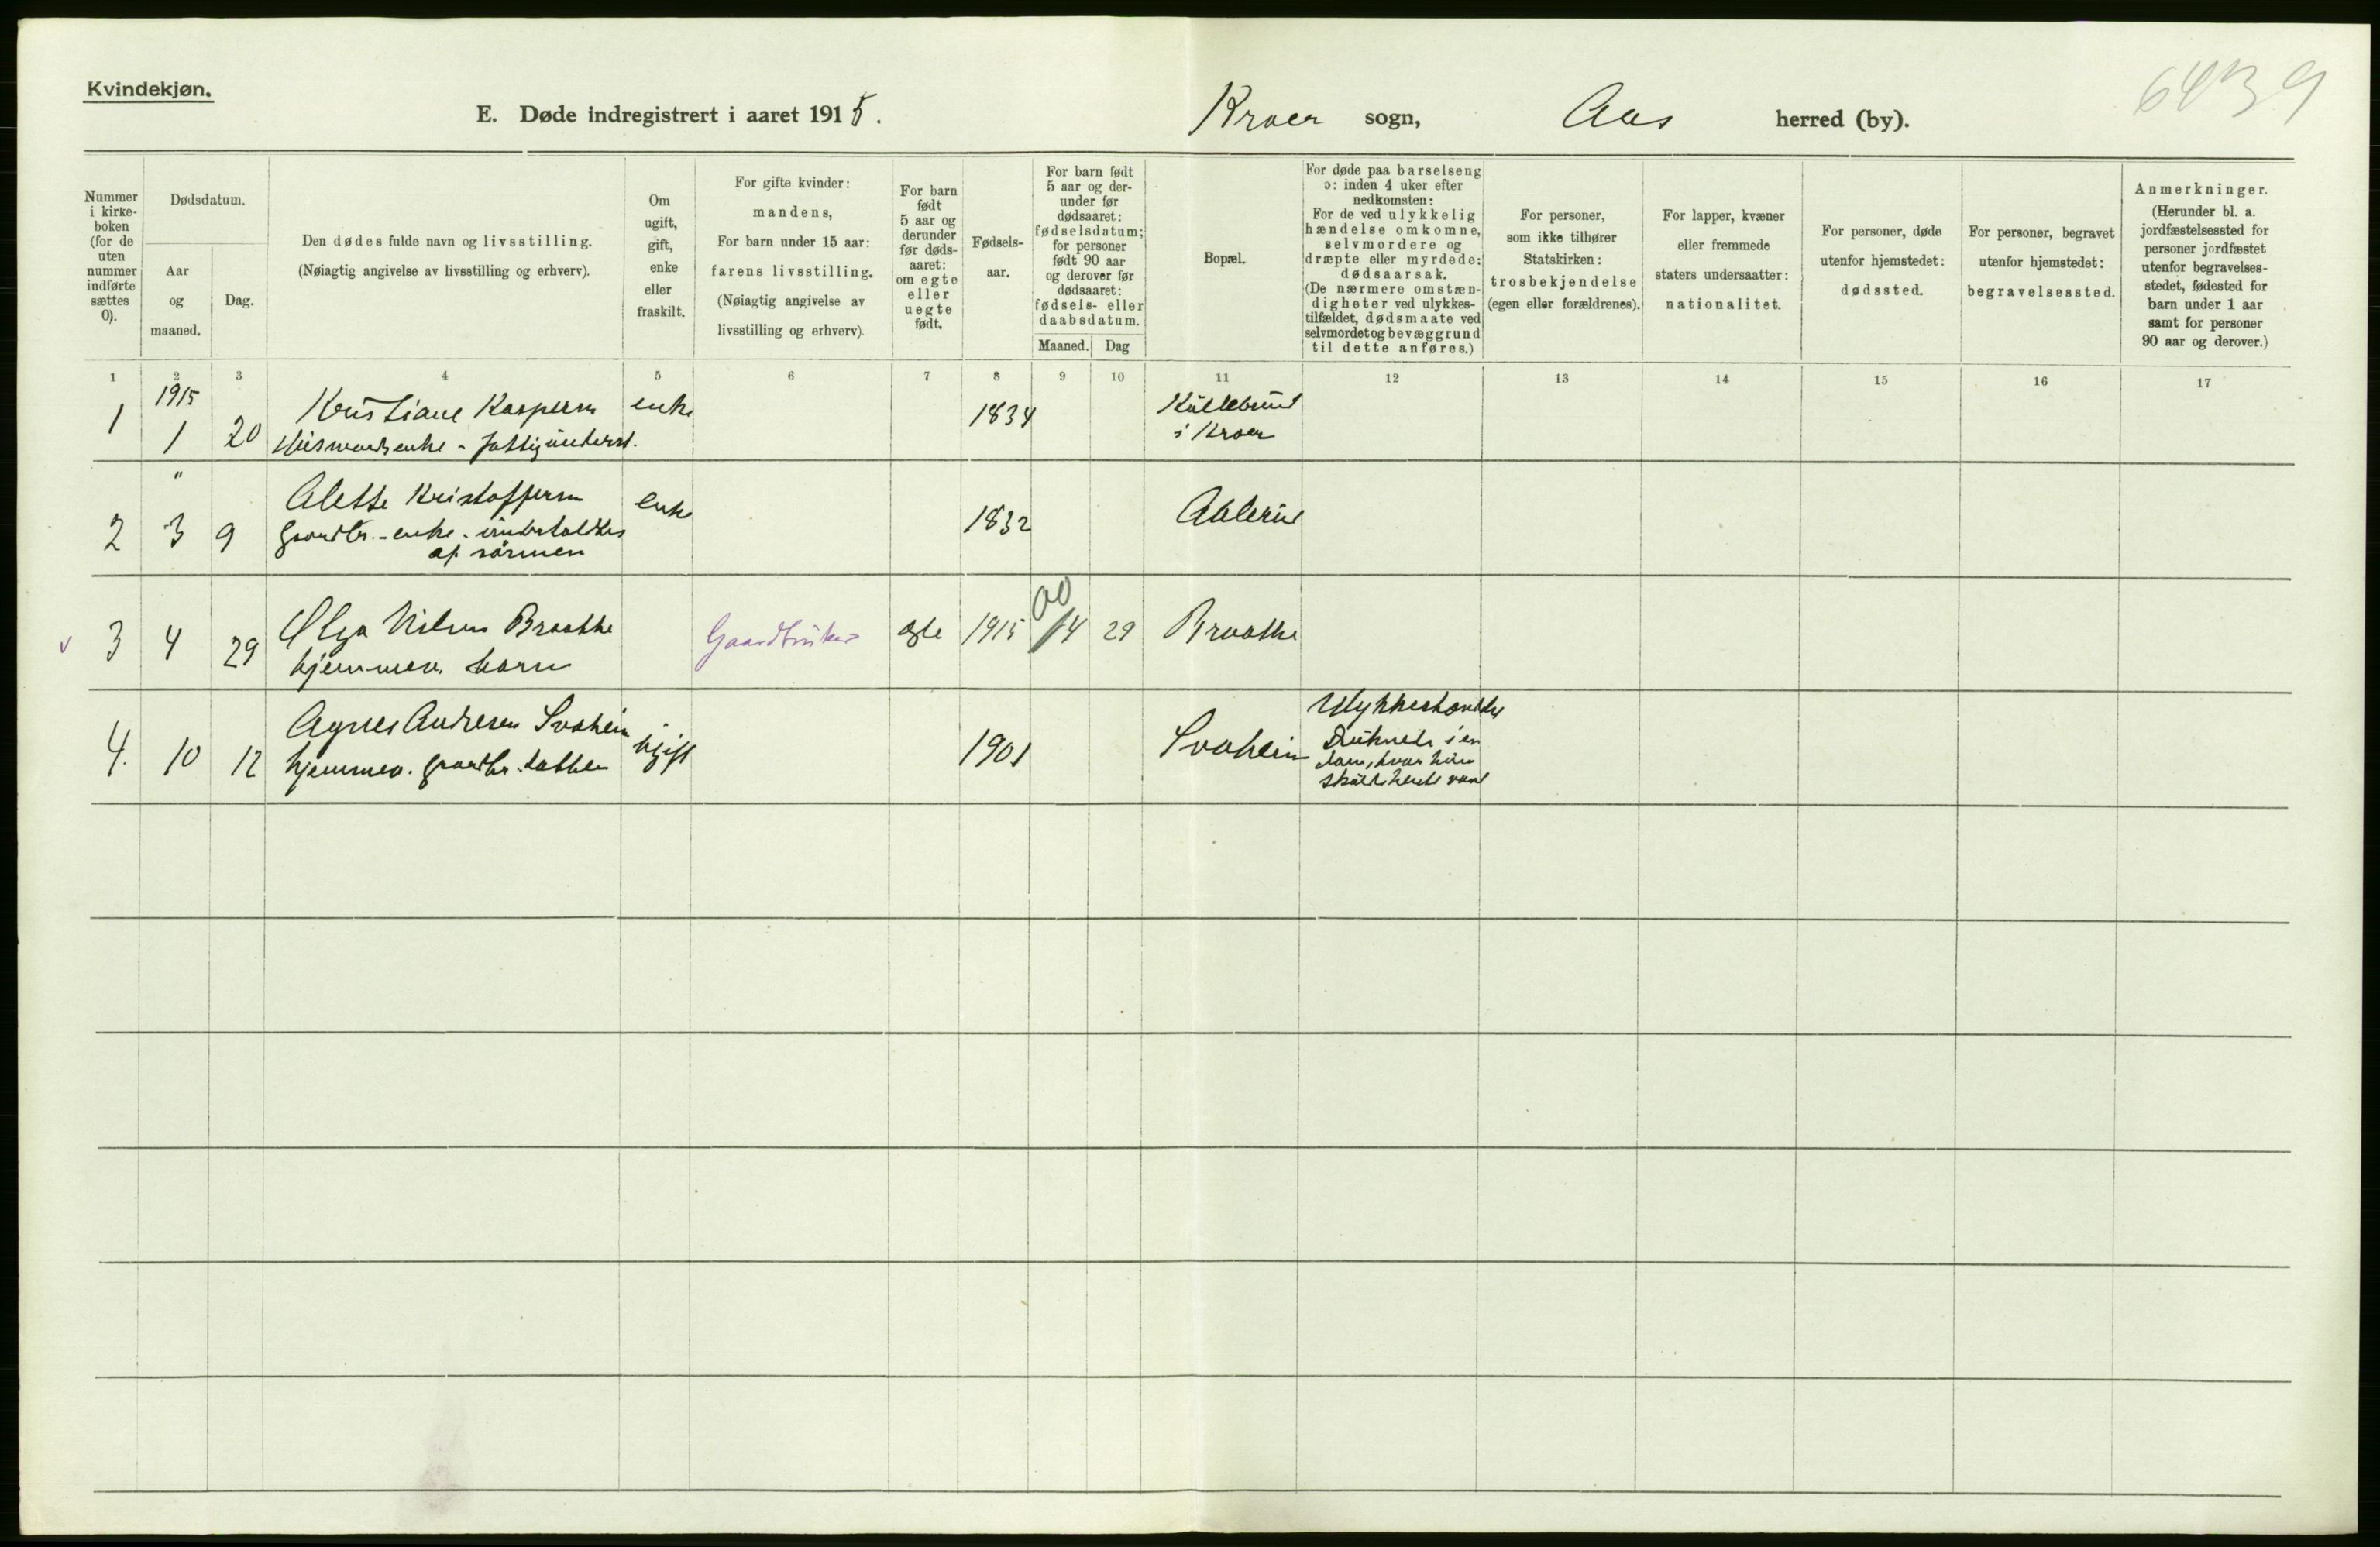 Kvindekjøn.
6439
E. Døde indregistrert i aaret 1915.
Kroer sogn, Aas herred (by).
Nummer
i kirke-
boken
(for de
uten
nummer
indførte
sættes
0).
Dødsdatum.
Aar
og
maaned.
Dag.
Den dødes fulde navn og livsstilling.
(Nøiagtig angivelse av livsstilling og erhverv).
Om
ugift,
gift,
enke
eller
fraskilt.
For gifte kvinder:
mandens,
For barn under 15 aar:
farens livsstilling.
(Nøiagtig angivelse av
livsstilling og erhverv).
For barn
født
5 aar og
derunder
før døds-
aaret:
om egte
eller
uegte
født.
Fødsels-
aar.
For barn født
5 aar og der-
under før
dødsaaret:
fødselsdatum;
for personer
født 90 aar
og derover før
dødsaaret:
fødsels- eller
daabsdatum.
Maaned. Dag
Bopæl.
For døde paa barselseng
ɔ: inden 4 uker efter
nedkomsten:
For de ved ulykkelig
hændelse omkomne,
selvmordere og
dræpte eller myrdede:
dødsaarsak.
(De nærmere omstæn-
digheter ved ulykkes-
tilfældet, dødsmaate ved
selvmordet og bevæggrund
til dette anføres.)
For personer,
som ikke tilhører
Statskirken:
trosbekjendelse
(egen eller forældrenes).
For lapper, kvæner
eller fremmede
staters undersaatter:
nationalitet.
For personer, døde
utenfor hjemstedet:
dødssted.
For personer, begravet
utenfor hjemstedet:
begravelsessted.
Anmerkninger.
(Herunder bl. a.
jordfæstelsessted for
personer jordfæstet
utenfor begravelses-
stedet, fødested for
barn under 1 aar
samt for personer
90 aar og derover.)
1 2 3 4 5 6 7 8 9 10 11 12 13 14 15 16 17
1915
1 1 20 Kristiane Kaspersen enke 1834
Husmandsenke - fattigunderst.
i Kroer
"
2 3 9 Alette Kristoffersen enke 1832
gaardbr. - enke - underholdtes
af sønnen
3 4 29 Olga Nilsen Braathe Gaardbruker egte 1915 4 29 Braathe
hjemmev. barn
4. 10 12 Agnes Andresen Svahein ugift 1901 Svahein
hjemmev. gaardbr. datter
Ulykkeshændelse
Druknede i en
dam, hvor hun
skulde hente vand